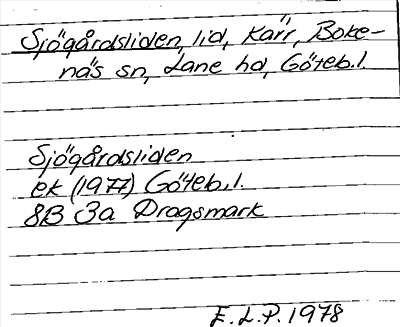 Sjögårdsliden, lid, Kärr, Boke-
näs sn, Lane hd, Göteb.l.
Sjögårdsliden
ek (1977) Göteb.l.
8B 3a Dragsmark
E.L.P. 1978